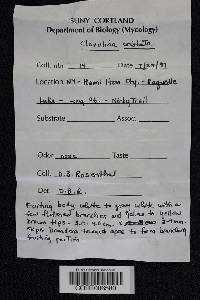 SUNY CORTLAND
Department of Biology (Mycology)
Clavulina cristata
Coll. nbr. 14 Date 7/24/97
Location NY - Hami lton Cty. - Raquette
Lake - Long Pt. - Nicky Trail
Substrate Assoc.
Odor none Taste
Coll. D.B. Rosenthal
Det. D.B.R.
Fruiting body white to gray white with a
few flattened branches and to yellow
brown tips - 3.5 - 4.6 cm x 2-4 mm.
broadens toward apex to form branching
fruiting portion